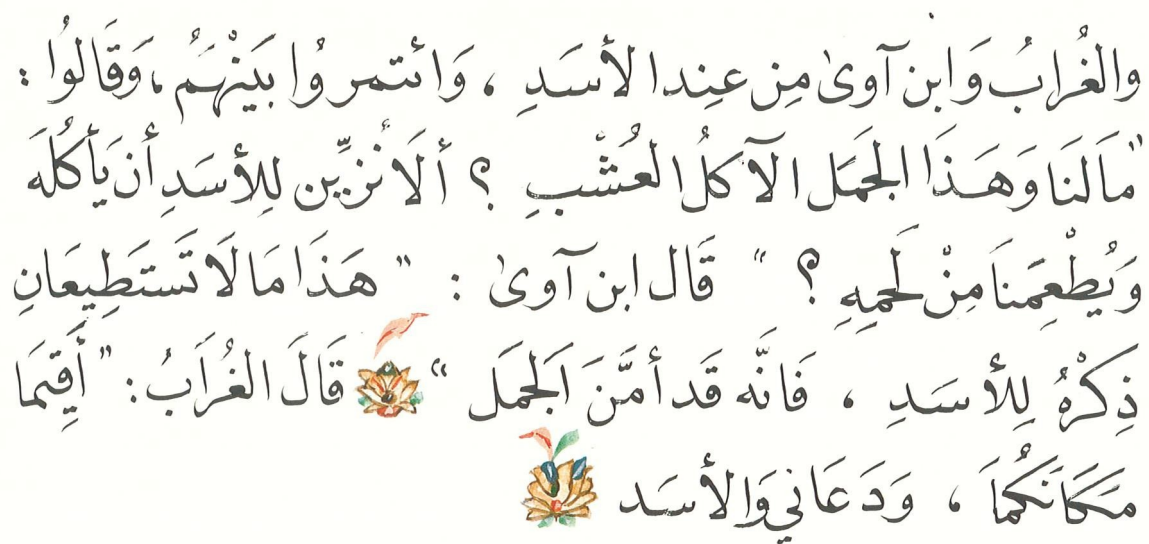 والغُرابُ وَابن آوىٰ مِن عِند الأسَدِ ، وَائتمروُا بَينْهَمُ ، وَقَالوُا :
"مَا لَنَا وَهَذَا الجَمَل الآكلُ العُشْبِ ؟ ألَا نُزيِّن لِلأسَدِ أن يَأكُلَه
وَيُطْعِمَنَا مِنْ لَحمِهِ ؟ " قَال ابن آوىٰ : " هَذَا مَا لَا تَستَطِيعَانِ
ذِكْرهُ لِلأسَدِ ، فَانَّه قَد أمَّنَ اَلجَمل " قَالَ الغُرَابُ : " أَقِيمَا
مَكَانَكُمَا ، وَدَعَاني وَالأسَد